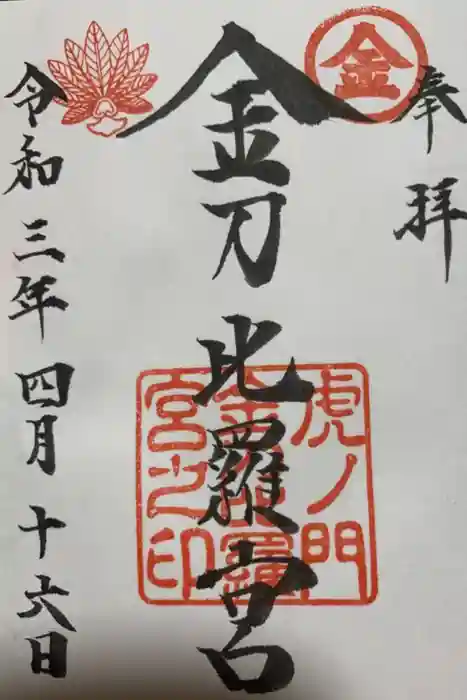 奉拝
金
金刀比羅宮
虎ノ門
金刀比羅
宮之印
令和三年四月十六日